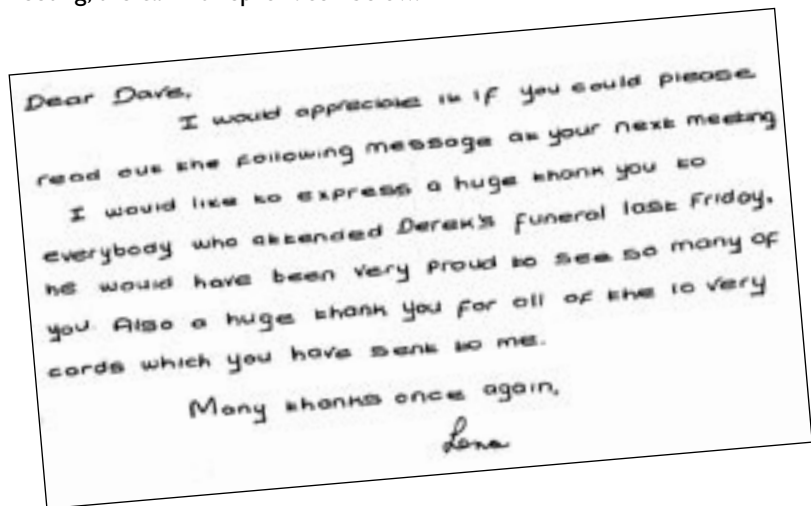 Dear Dave,
I would appreciate it if you could please
read out the following message at your next meeting
I would like to express a huge thank you to
everybody who attended Derek's funeral last Friday,
he would have been very proud to see so many of
you. Also a huge thank you for all of the lovely
cards which you have sent to me.
Many thanks once again,